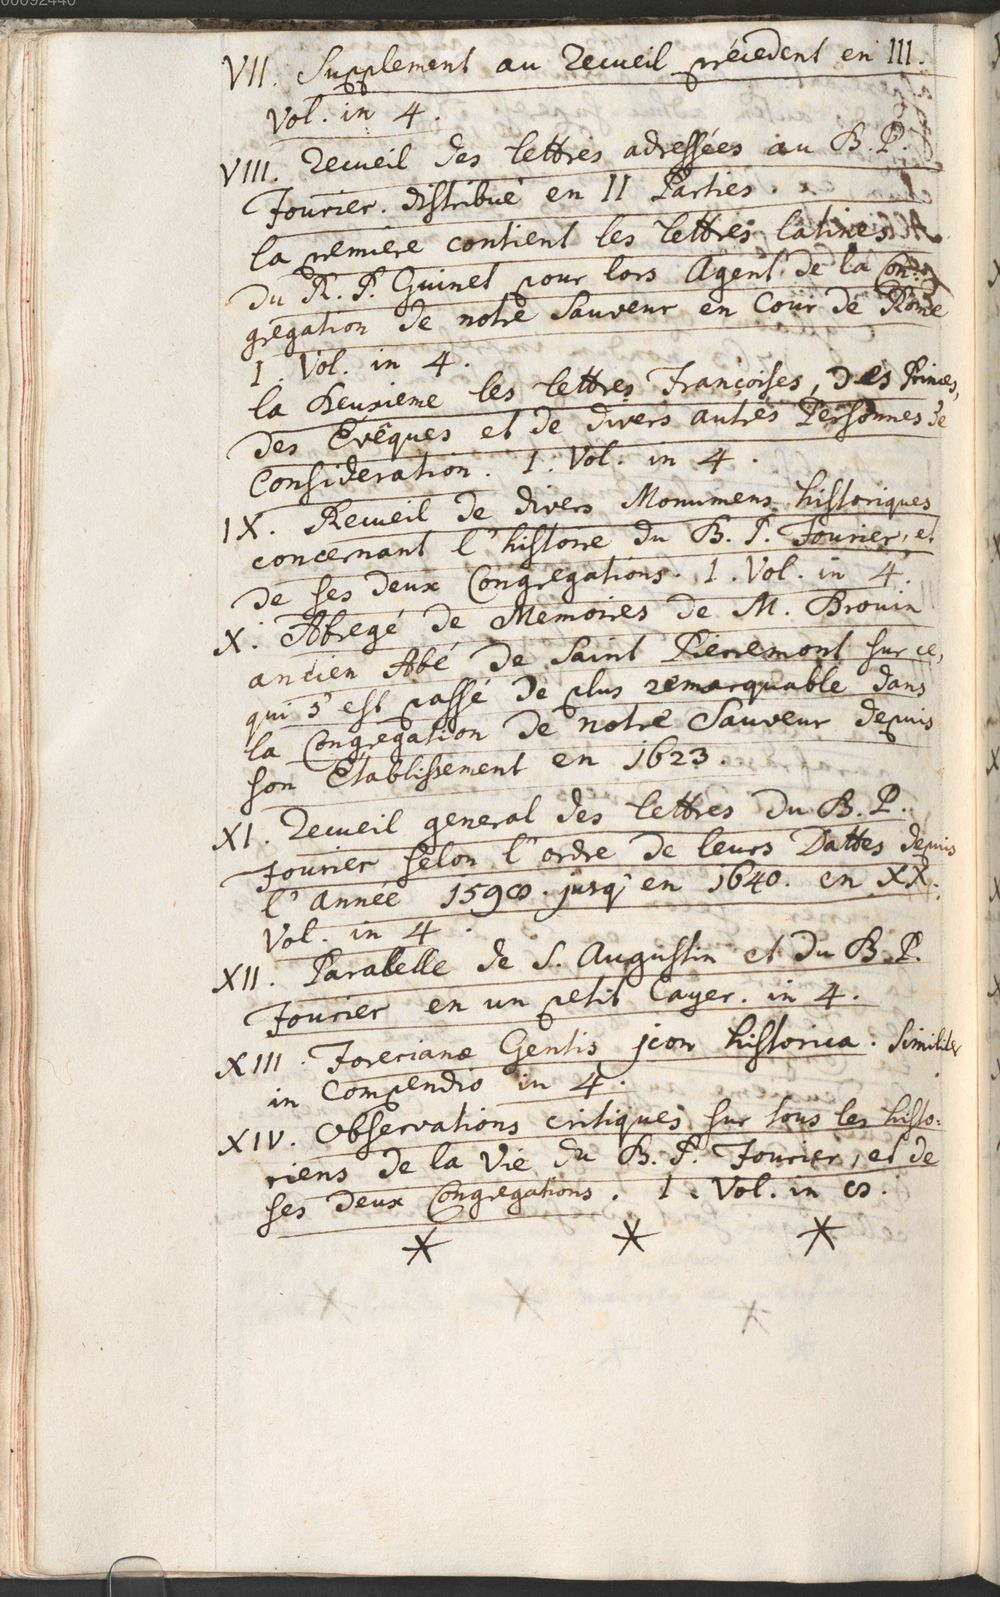 VII. Supplement au Recueil précedent en III.
Vol. in 4.
VIII. Recueil des lettres adressées au B. P.
Fourier. distribué en II Parties.
la premiere contient les lettres latines
du R. P. Guinet pour lors Agent de la Con-
gregation de notre Sauveur en Cour de Rome
I. Vol. in 4.
la deuxieme les lettres Françoises, des Princes,
des Evêques et de divers autres Personnes de
Consideration. I. Vol. in 4.
IX. Recueil de divers Monumens historiques
concernant l'histoire du B. P. Fourier, et
de ses deux Congregations. I. Vol. in 4.
X. Abregé de Memoires de M. Brouin
ancien Abé de Saint Pierremont sur ce,
qui s'est passé de plus remarquable dans
la Congregation de notre Sauveur depuis
son Etablissement en 1623.
XI. Recueil general des lettres du B. P.
Fourier selon l'ordre de leurs Dattes depuis
l'année 1598. jusq' en 1640. en XX.
Vol. in 4.
XII. Paralelle de S. Augustin et du B. P.
Fourier en un petit Cayer. in 4.
XIII. Forerianæ Gentis jcon historica. Similiter
in Compendio in 4.
XIV. Observations critiques sur tous les histo-
riens de la Vie du B. P. Fourier, et de
ses deux Congregations. I. Vol. in 8.
* * *